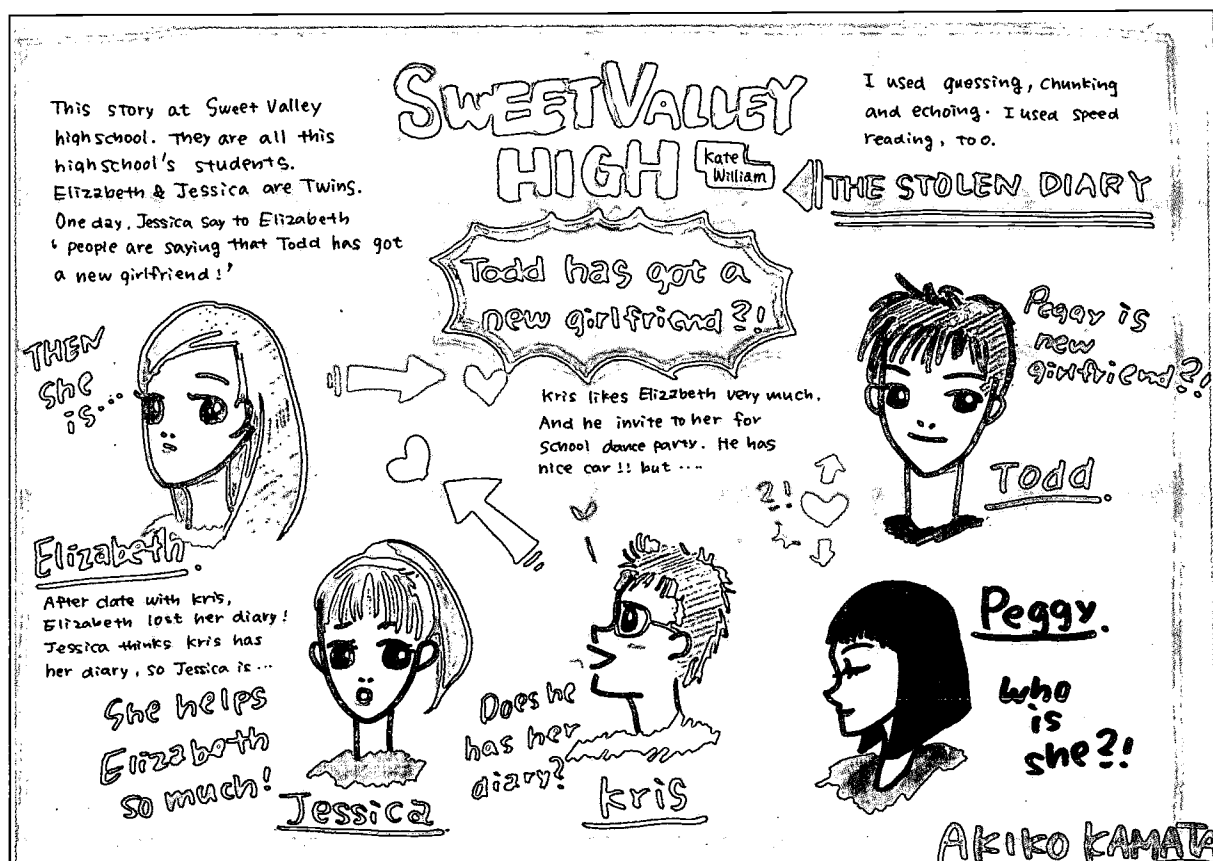 This story at Sweet Valley
highschool. They are all this
highschool's students.
Elizabeth & Jessica are Twins.
One day, Jessica say to Elizabeth
' people are saying that Todd has got
a new girlfriend!'
SWEET VALLEY
HIGH
Kate
William
I used guessing, chunking
and echoing. I used speed
reading, too.
THE STOLEN DIARY
Todd has got a
new girlfriend?!
THEN
she
is...
Kris likes Elizabeth very much.
And he invite to her for
School dance party. He has
nice car!! but ....
Peggy is
new
girlfriend?!
Todd.
?!
Elizabeth.
After date with Kris,
Elizabeth lost her diary!
Jessica thinks Kris has
her diary, so Jessica is ...
She helps
Elizabeth
so much!
Jessica.
Does he
has her
diary?
Kris
Peggy.
who
is
she?!
AKIKO KAMATA